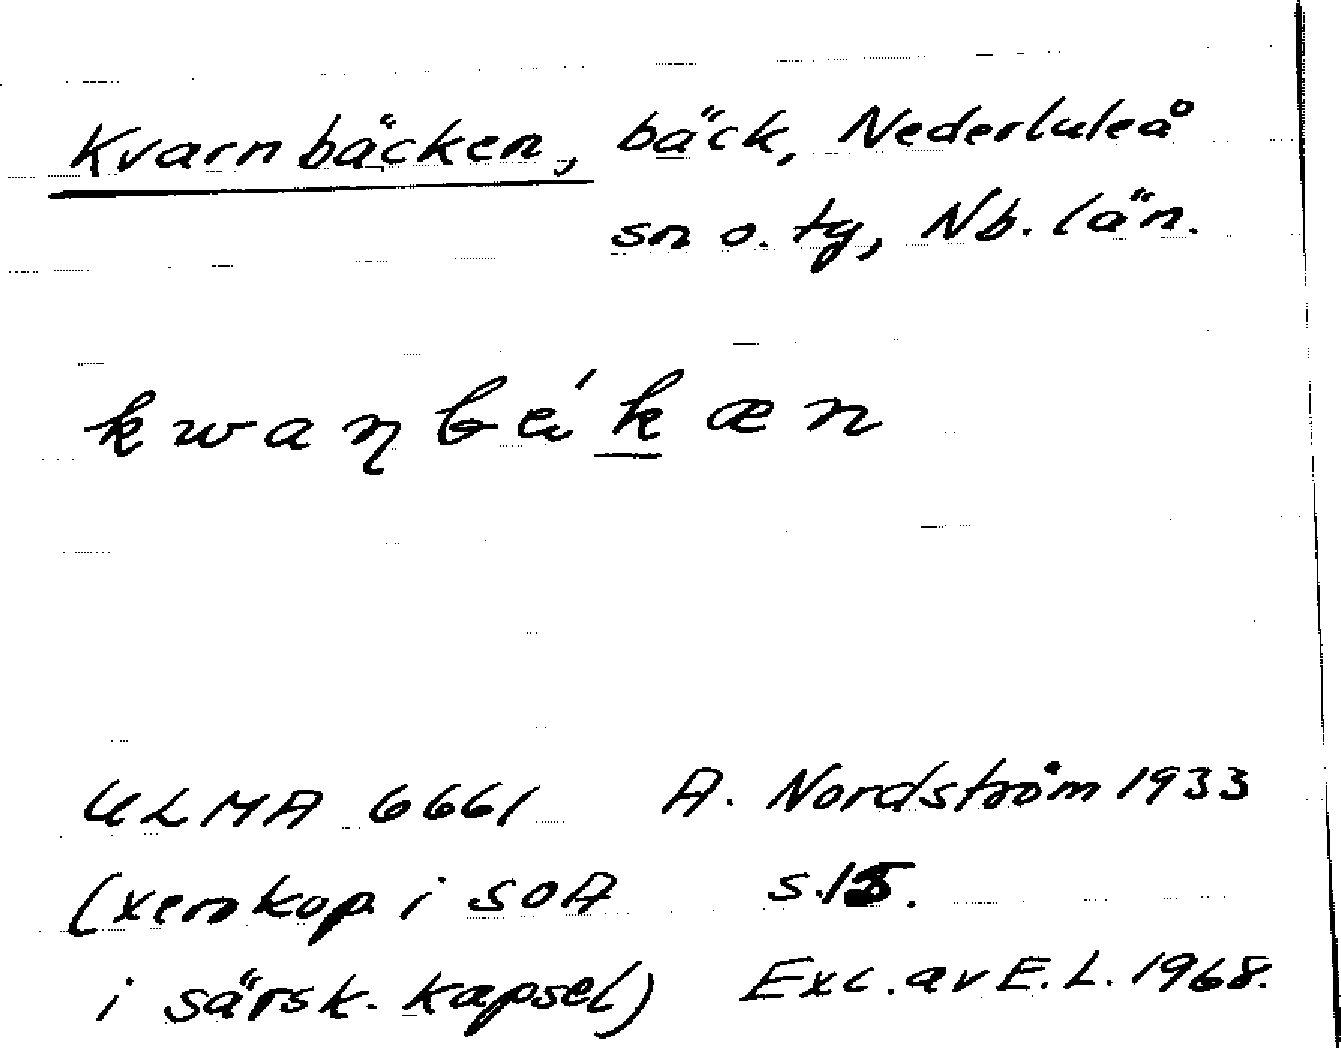 Kvarnbäcken, bäck, Nederluleå
sn o. tg, Nb. län.
kwaɳbék̲æn
ULMA 6661 A. Nordström 1933
(xerokop. i SOA s. 15.
i särsk. kapsel) Exc. av E. L. 1968.